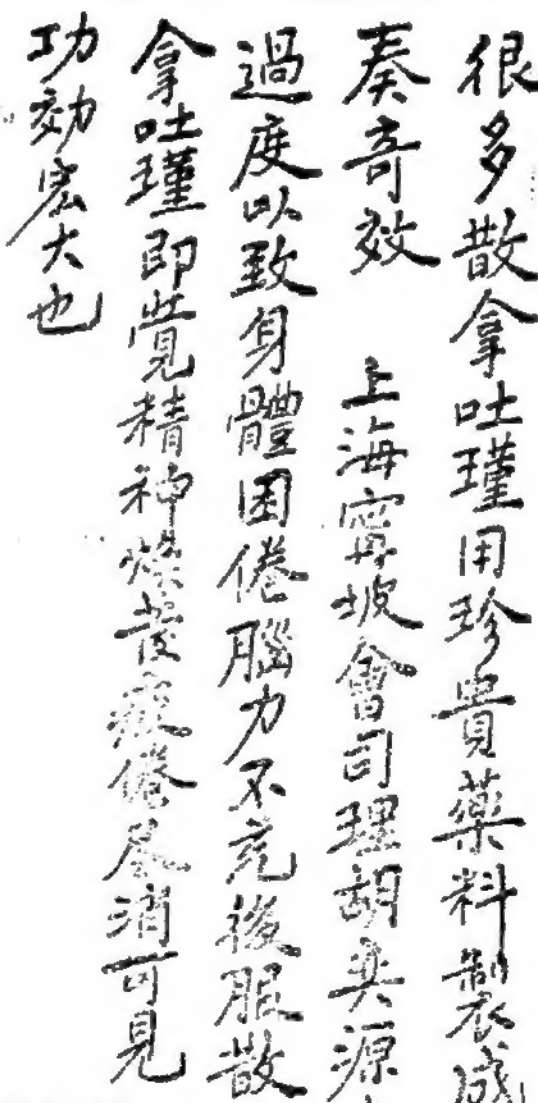 很多散拿吐瑾用珍貴藥料製成
奏奇效　上海寧坡會司理胡源
過度以致身體困倦腦力不充後服散
拿吐瑾即覺精神煥發疲倦尽消可見
功効宏大也